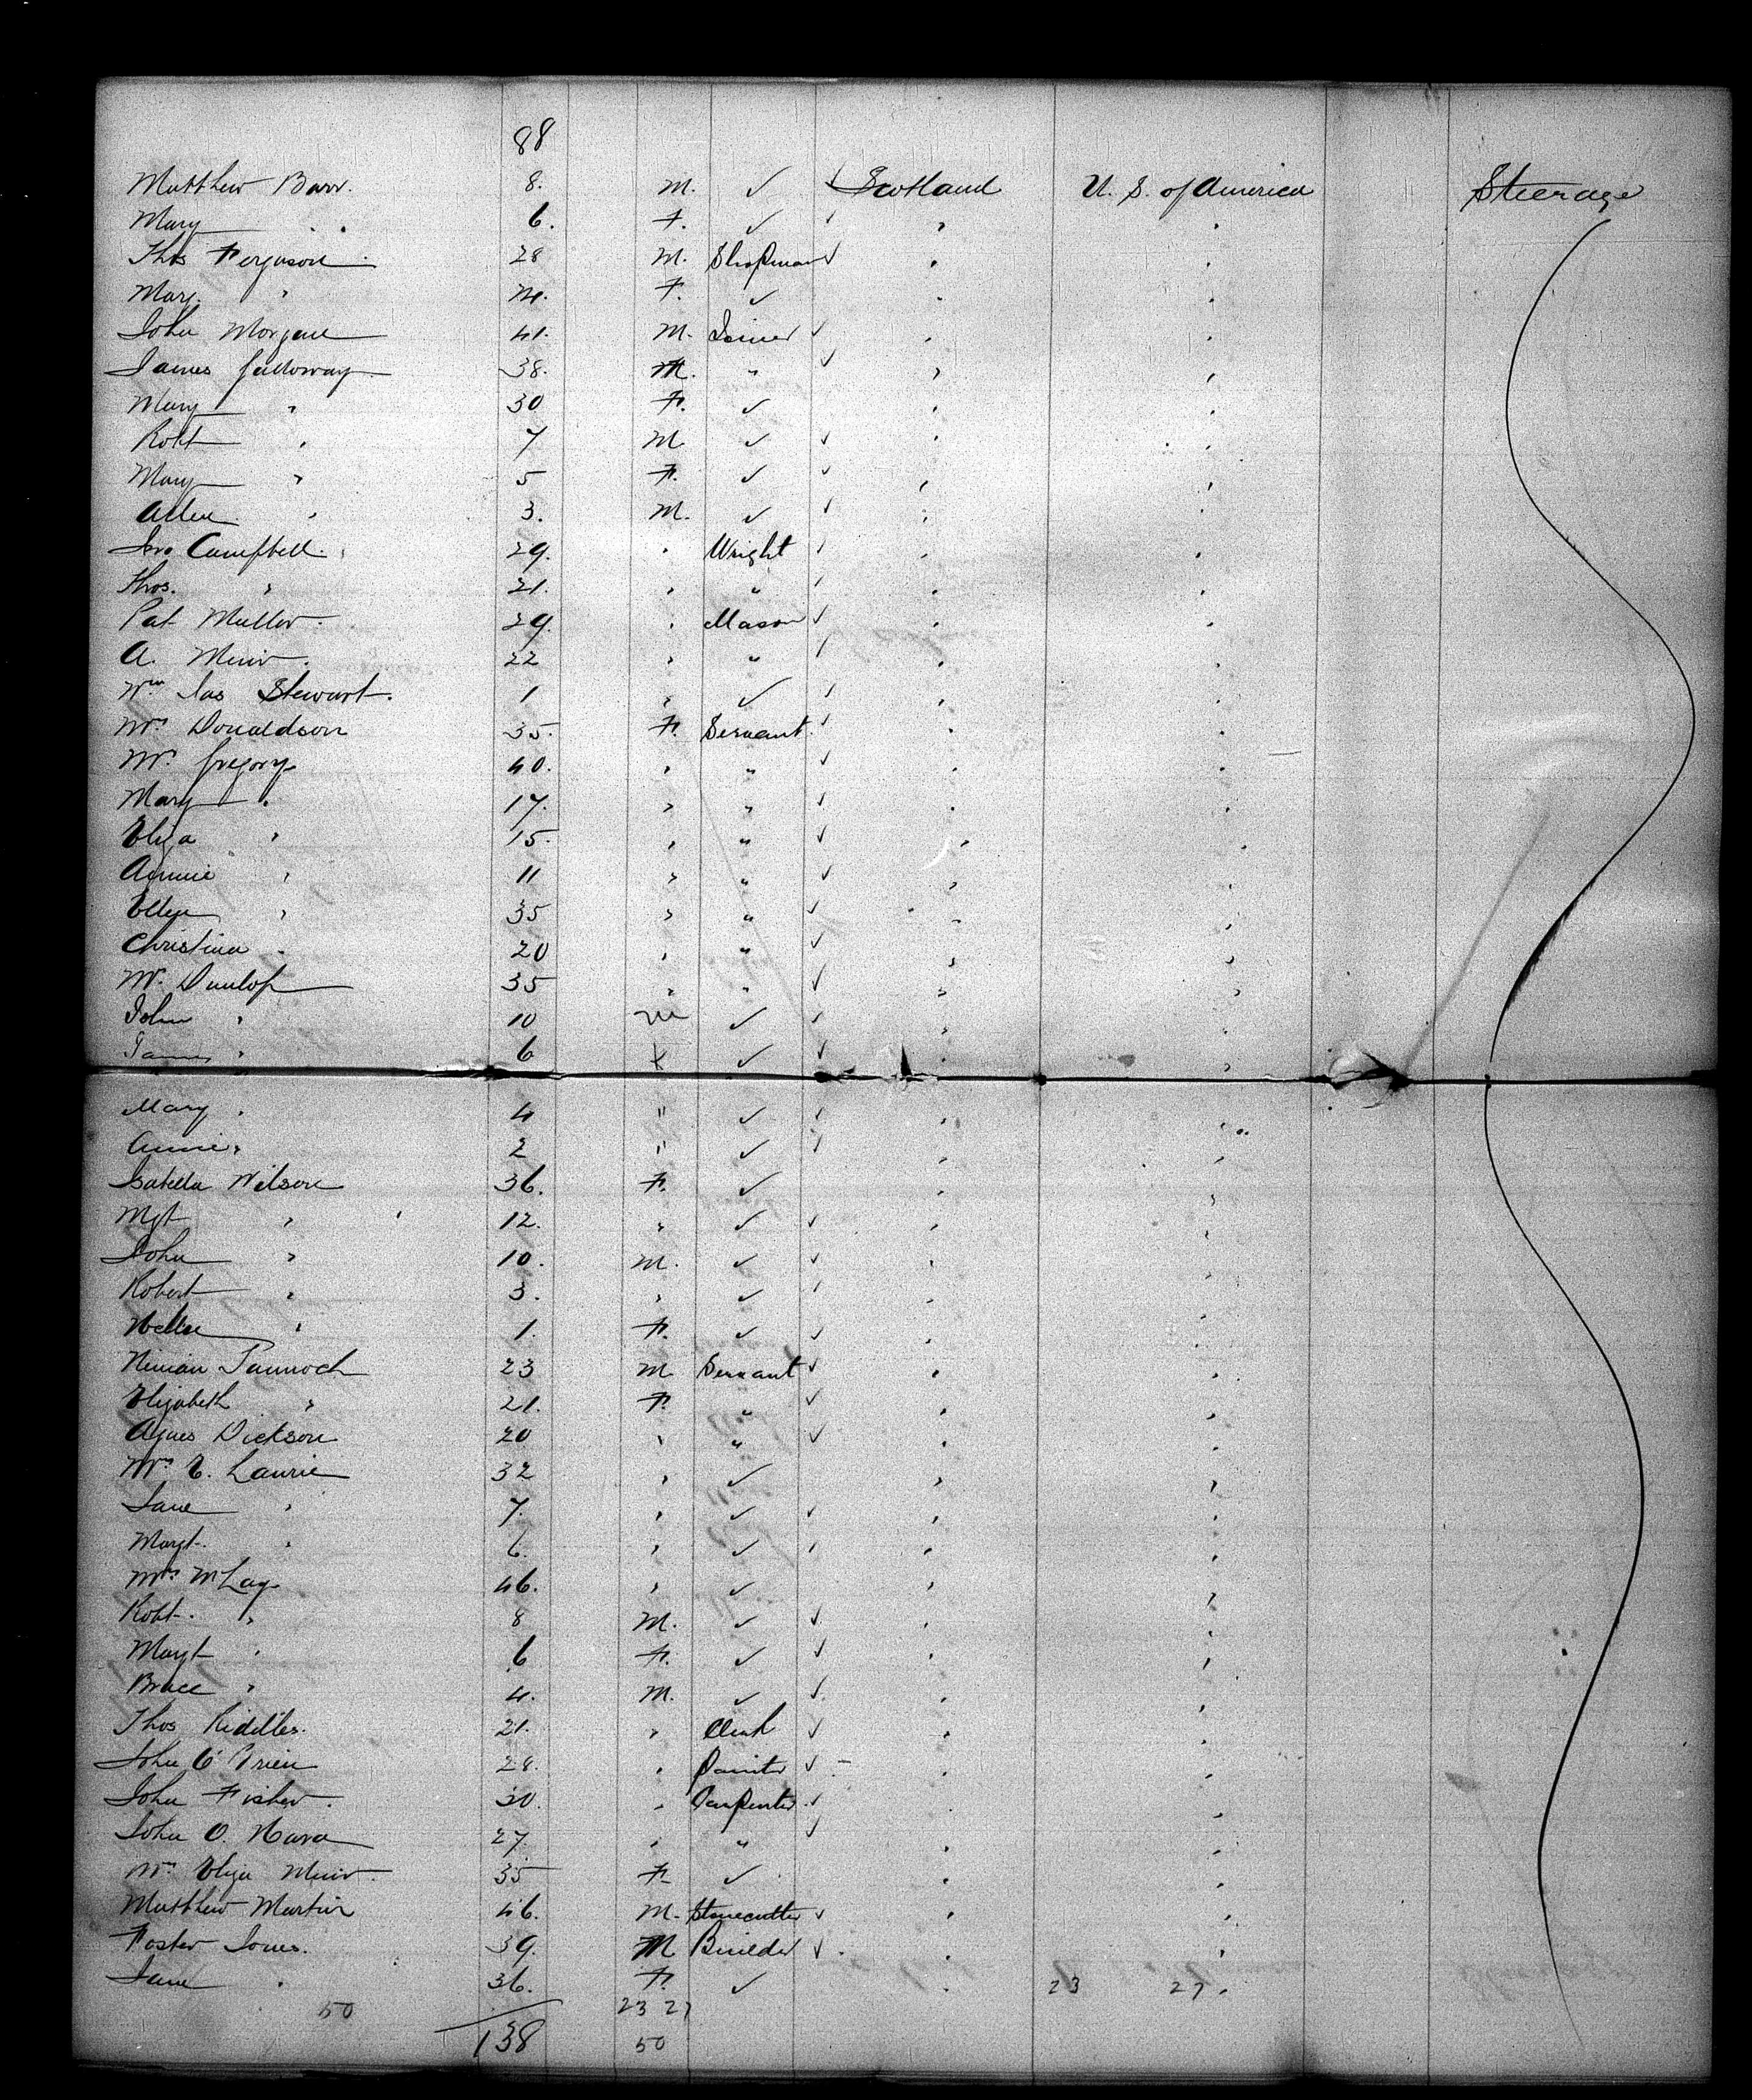 88
Matthew Barr. 8. M. ✓ ✓ Scotland U. S. of America Steerage
Mary " 6. F. ✓ ✓ " "
Thos Ferguson 28 M. Shopman ✓ " "
Mary. " 24. F. ✓ " "
John Morgan 41. M. Joiner ✓ " "
James Galloway 38. M. " ✓ " "
Mary " 30 F. ✓ " "
Robt " 7 M. ✓ ✓ " "
Mary " 5 F. ✓ ✓ " "
Allen " 3. M. ✓ ✓ " "
Jno Campbell 29. " Wright ✓ " "
Thos. " 21. " " ✓ " "
Pat 29. " Mason ✓ " "
A. Muir. 22 " " ✓ " "
Wm Jas Stewart. 1 " ✓ ✓ " "
Mrs Donaldson 35. F. Servant ✓ " "
Mrs Gregory 40. " " ✓ " "
Mary " 17. " " ✓ " "
Eliza " 15. " " ✓ " "
Annie " 11 " " ✓ " "
Ellen " 35 " " ✓ " "
Christina " 20 " " ✓ " "
Mrs. Dunlop 35 " " ✓ " "
John " 10 M ✓ ✓ " "
James " 6 ✓ ✓ " "
Mary " 4 " ✓ ✓ " "
Annie " 2 " ✓ ✓ " "
Isabella Wilson 36. F. ✓ " "
Mgt " 12. " ✓ ✓ " "
John " 10. M. ✓ ✓ " "
Robert " 3. " ✓ ✓ " "
Nellie " 1. F. ✓ ✓ " "
Ninian Tannoch 23 M Servant ✓ " "
Elizabeth " 21. F. " ✓ " "
Agnes Dickson 20 " " ✓ " "
Mrs E. Laurie 32 " ✓ " "
Jane " 7. " ✓ ✓ " "
Margt. " 6. " ✓ ✓ " "
Mrs McLay 46. " ✓ " "
Robt. " 8 M. ✓ ✓ " "
Margt " 6 F. ✓ ✓ " "
Bruce " 4. M. ✓ ✓ " "
Thos Riddles. 21. " Clerk ✓ " "
John O'Brien 28. " Painter ✓ " "
John Fisher. 30. " Carpenter ✓ " "
John O. Hara 27. " " ✓ " "
Mrs Eliza Muir 35 F. ✓ " "
Matthew Martin 46. M. Stonecutter ✓ " "
Foster Jones. 39. M Builder ✓ " "
Jane " 36. F. ✓ " 23 27 "
50 23 27
138 50